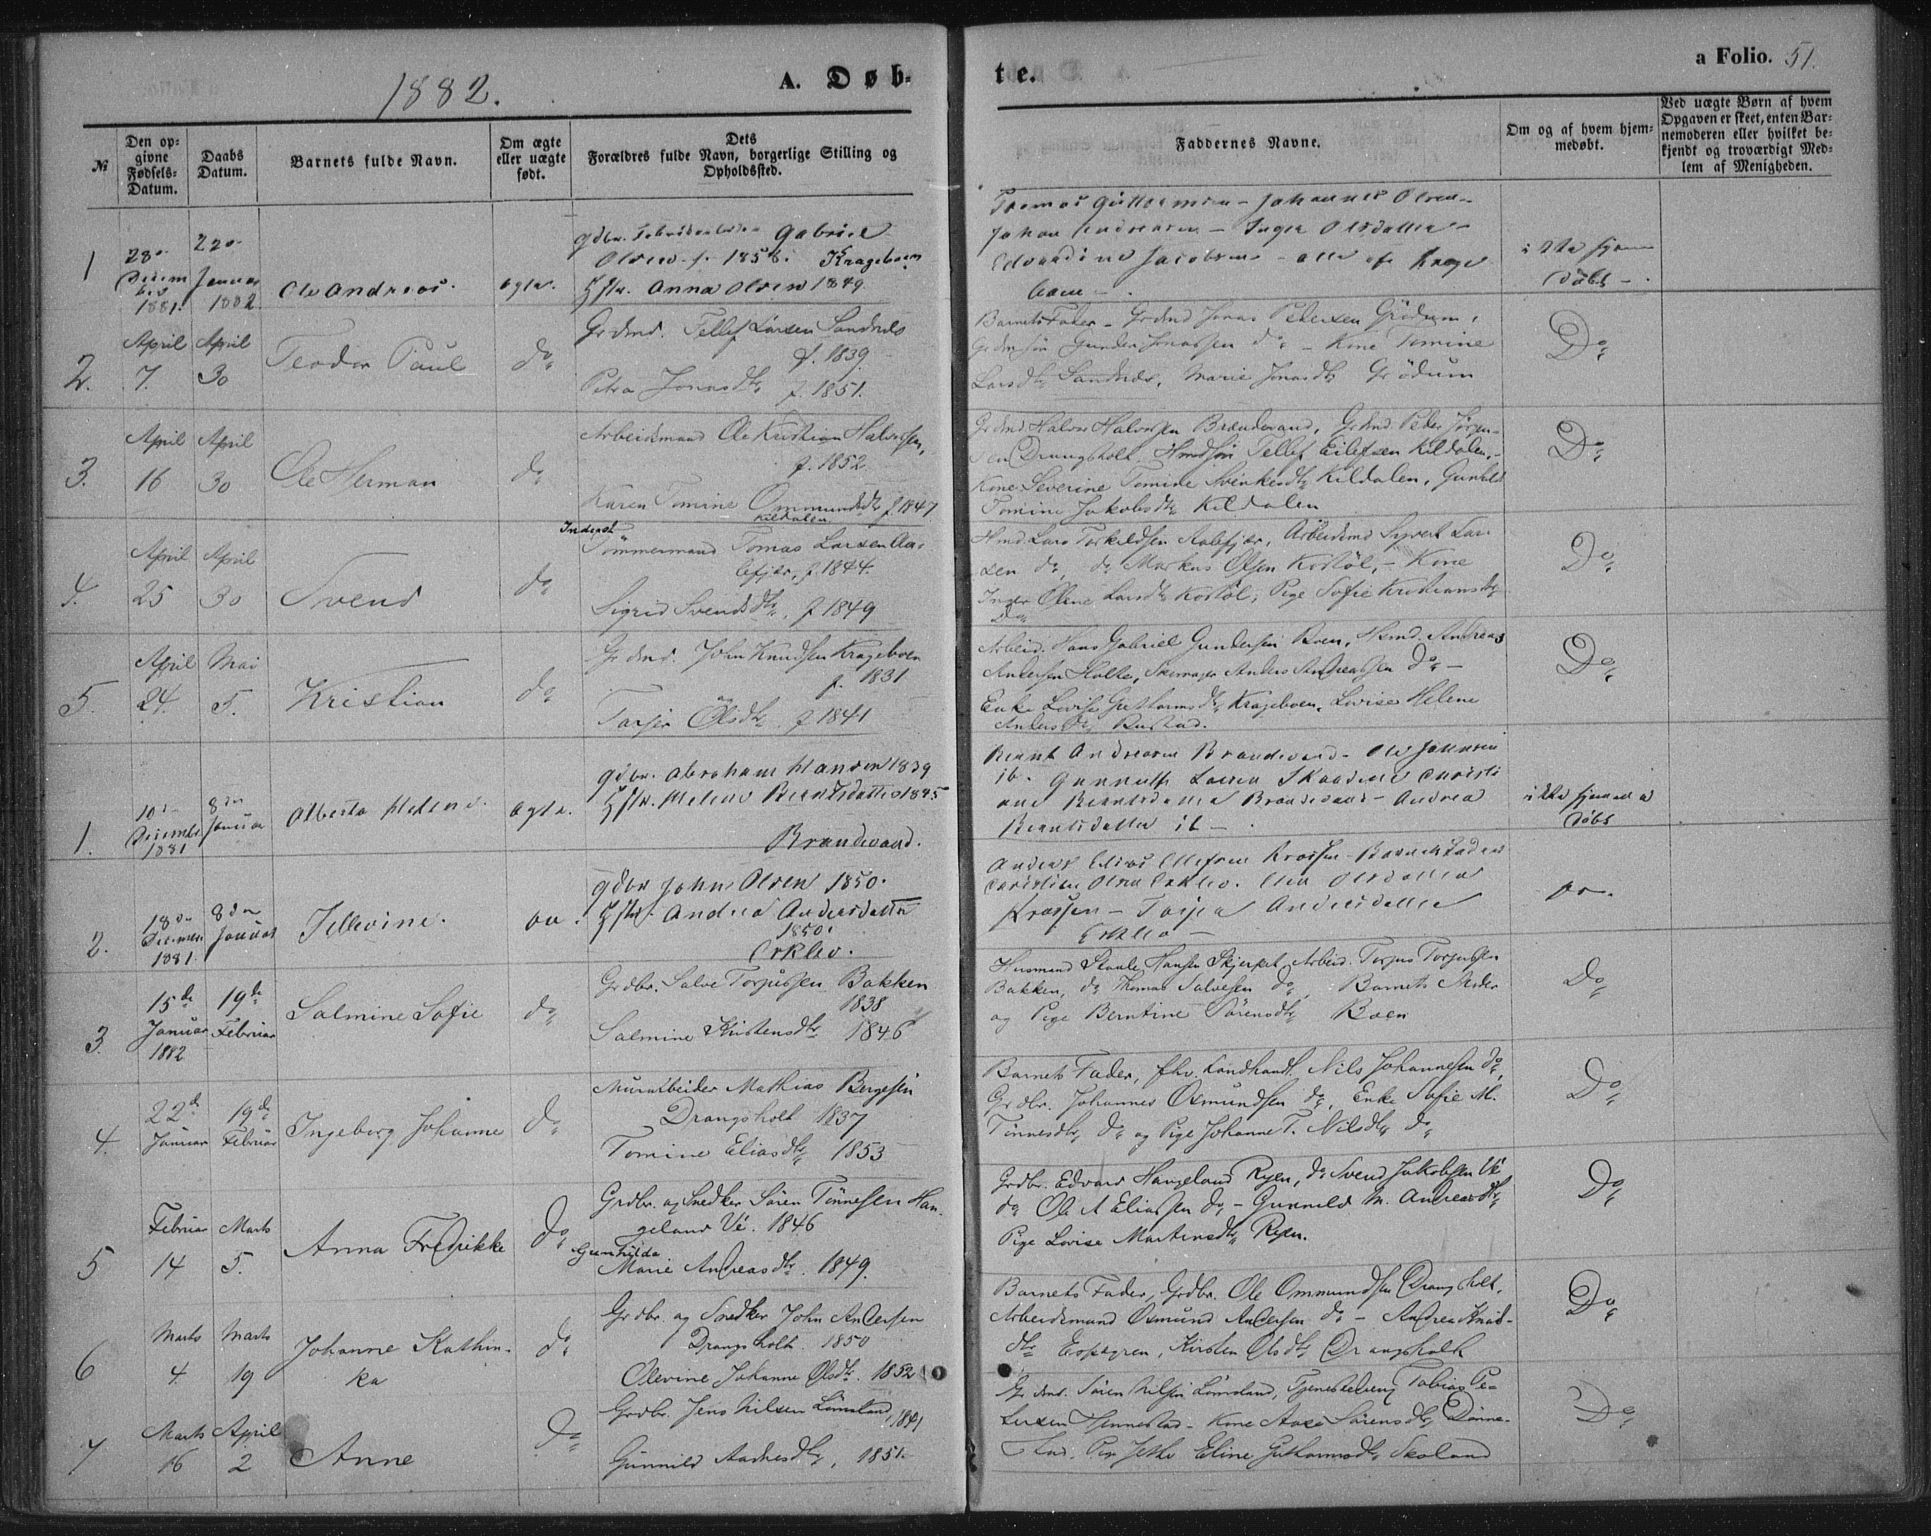 1882.
A. Døb-
te.
a Folio. 51.
№
Den op-
givne
Fødsels-
Datum.
Daabs
Datum.
Barnets fulde Navn.
Om ægte
eller uægte
født.
Dets
Forældres fulde Navn, borgerlige Stilling og
Opholdssted.
Faddernes Navne.
Om og af hvem hjem-
medøbt.
Ved uægte Børn af hvem
Opgaven er skeet, enten Bar-
nemoderen eller hvilket be-
kjendt og troværdigt Med-
lem af Menigheden.
1
28
Decem
ber
1881.
22
Januar
1882.
Ole Andreas.
ægte.
Gdbr. Gabriel
Olsen f. 1856. Krageboen
Hstr. Anna Olsen 1849.
Johannes Olsen
Johan Andreasen - Inger Olsdatter
Edvardine Jacobsen - alle af Krage
boen -
ikke hjemme
døbt -
2.
April
7.
April
30
Teodor Paul
do
Grdmd. Tellef Larsen Sandnes
f. 1839
Petra Jonasdtr f. 1851.
Barnets Fader - Grdmd Jonas Pedersen Grödum,
Grdmsøn Gunder Jonassen do - Kone Tomine
Larsdtr Sandnes, Marie Jonasdtr Grödum
Do
3.
April
16
April
30
Ole Herman
do
Arbeidsmand Ole Kristian Halvorsen,
f. 1852.
Karen Tomine Ommundsdtr f. 1847
Kildalen
Grdmd Halvor Halvorsen Brændevand, Grdmd. Peder Jörgen-
sen Drangsholt, Tellef Eilefsen Kildalen, -
Kone Severine Tomine Kildalen, Gunhild
Tomine Jakobsdtr Kildalen
Do
4.
April
25
April
30
Svend
do
Inderst
Tømmermand Tomas Larsen Aa-
lefjær, f. 1844.
Sigrid Svendsdtr f. 1849
Hmd. Lars Torkildsen Aalefjær, Arbeidsmd Sigvert Lar-
sen do, do Markus Olsen Kostöl, - Kone
Inger Oline Larsdtr Kostöl, Pige Sofie Kristiansdtr
Do
Do
5.
April
24.
Mai
5.
Kristian
do
Grdmd. John Knudsen Krageboen
f. 1831
Torjer Olsdtr f. 1841
Arbeid. Hans Gabriel Gundersen Boen, Hsmd. Andreas
Andersen Holte, Skomager Anders Andreassen do -
Enke Lovise Guttormsdtr Krageboen, Lovise Helene
Andersdtr Rustad.
Do
1.
10
December
1881
8de
Januar
Alberta Helene.
ægte.
Gdbr. Abraham Hansen 1839
Hstr. Helene Berntsdatter 1845
Brandevand.
Bernt Andreasen Brandevand - Ole Johnsen
ib. Christi
ane Berntsdatter Brandevand - Andrea
Berntsdatter ib -
ikke hjemme
døbt
2.
18de
December
1881
8de
Januar
Tellevine.
do.
Gdbr John Olsen 1850.
Hstr. Andrea Andersdatter
1850.
Erklev.
Anders Elias Ellefsen Krossen Barnets Fader
Christian Olsen Erklev. Olsdatter
Krossen - Torjer Andersdatter
Erklev -
do.
3.
15de
Januar
1882
19de
Februar
Salmine Sofie
do
Grdbr. Salve Torjussen Bakken
1838
Salmine Kristensdtr 1846
Husmand Staale Hansen Skjerpet, Arbeid. Torjus Torjussen
Bakken, do Thomas Salvesen do, Barnets Moder
og Pige Berntine Sörensdtr Boen
Do
4.
22de
Januar
19de
Februar
Ingeborg Johanne
do
Murarbeider Mathias Bergesen
Drangsholt 1837
Tomine Eliasdtr 1853
Barnets Fader, fhv. Landhandl. Nils Johannesen do,
Grdbr. Johannes Osmundsen do, Enke Sofie M.
Tönnesdtr do og Pige Johanne T. Nilsdtr do
Do
5
Februar
14
Marts
5.
Anna Fredrikke
do
Grdbr. og Snedker Sören Tönnesen Han-
geland Ve. 1846
Gunhilda
Marie Andreasdtr. 1849.
Grdbr. Edvard Hangeland Ryen, do Svend Jakobsen Ve
do Ole A Eliassen do - Gunnild M. Andreasdtr,
Pige Lovise Martinsdtr Ryen.
Do
6
Marts
4.
Marts
19
Johanne Kathin-
ka
do
Grdbr og Snedker John Andersen
Drangsholt. 1850
Olevine Johanne Olsdtr. 1852
Barnets Fader, Grdbr. Ole Ommundsen Drangsholt,
Arbeidsmand Osmund Andersen do - Andrea Knuds-
dtr Espegren, Kirsten Olsdtr Drangsholt
Do
7
Marts
16
April
2
Anne
do
Grdbr. Jens Nilsen Lömsland, 1841
Gunnild Aadnesdtr, 1851.
Grdmd. Sören Nilsen Lömsland, Tjenestedreng Tobias Pe-
dersen Hennestad - Kone Aase Sörensdtr Dönne-
stad, Pige Jethe Eline Guthormsdtr Skoland
Do